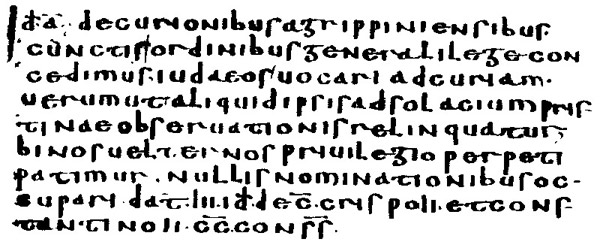 Id a. decurionibus agrippiniensibus.
cunctis ordinibus generali lege con
cedimus iudaeos uocari ad curiam.
uerum ut aliquid ipsis ad solacium pris
tinae obseruationis relinquatur
binos uel ternos priuilegio perpeti
patimur. nullis nominationibus oc-
supari dat. iii. id dec. crispo ii. et cons
tantino ii. cc. conss.